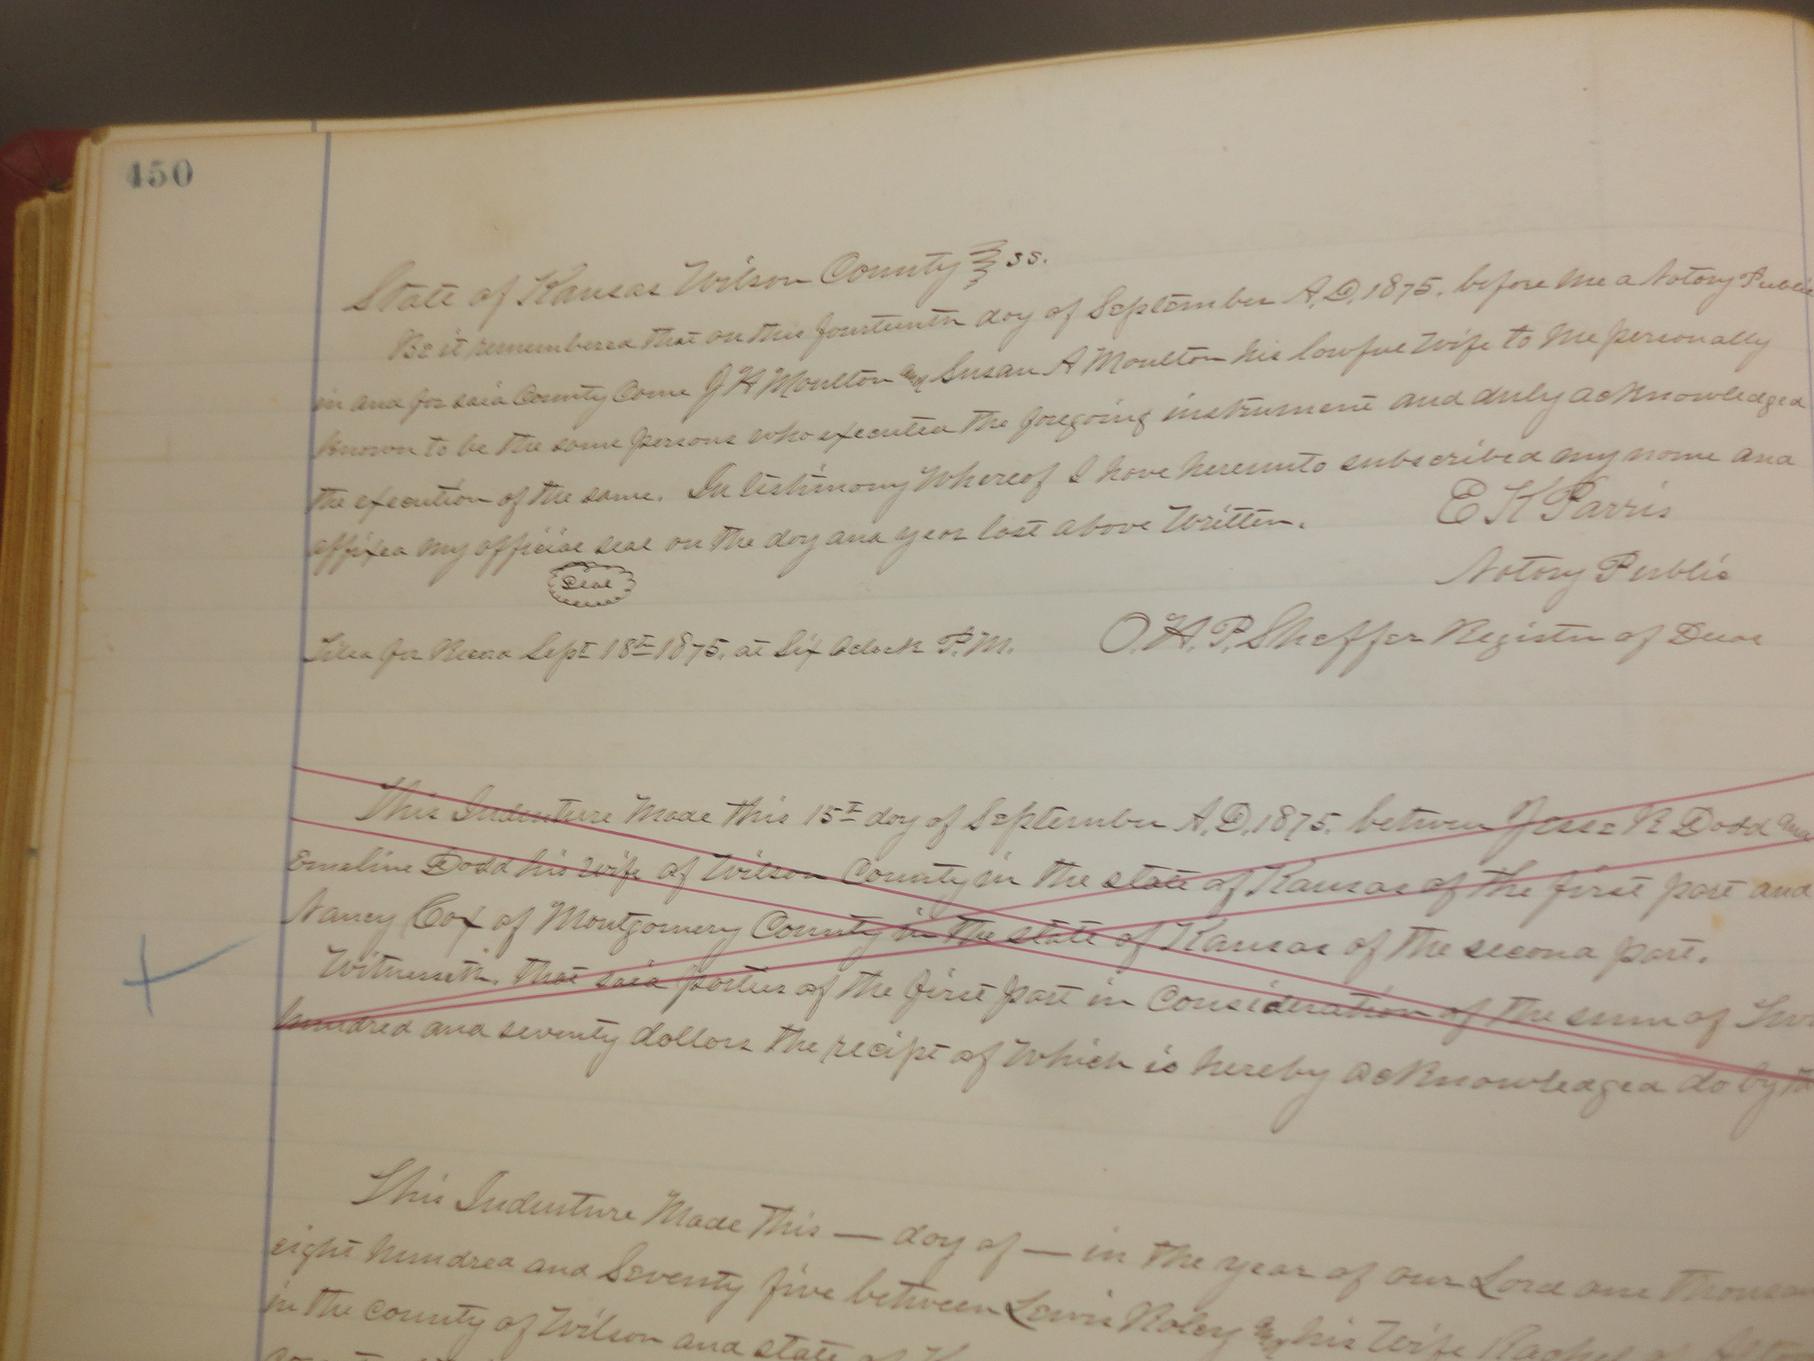 450
State of Kansas Wilson County } ss.
Be it remembered that on this fourteenth day of September A.D. 1875. before me a Notory Public
in and for said County Come J H Moulton and Susan A Moulton his lawful Wife to me personally
known to be the same persons who executed the foregoing instrument and duly acknowledged
the execution of the same. In testimony Whereof I have hereunto subscribed my name and
affixed my official seal on the day and year last above Written.
E K Parris
Seal
Notory Public
Filed for Record Sept 18th 1875. at Six Oclock P.M. O.H.P. Sheffer Register of Deeds
This Indenture Made this 15th day of September A.D. 1875. between Jesse R Dodd and
Emeline Dodd his wife of Wilson County in the state of Kansas of the first part and
Nancy Cox of Montgomery County in the state of Kansas of the second part.
Witnesseth. that said parties of the first part in Consideration of the sum of
hundred and seventy dollars the recipt of Which is hereby acknowledged do by
This Indenture Made this — day of — in the year of our Lord one
eight hundred and Seventy five between Lewis Roley and his Wife Rachel of
in the county of Wilson and state of